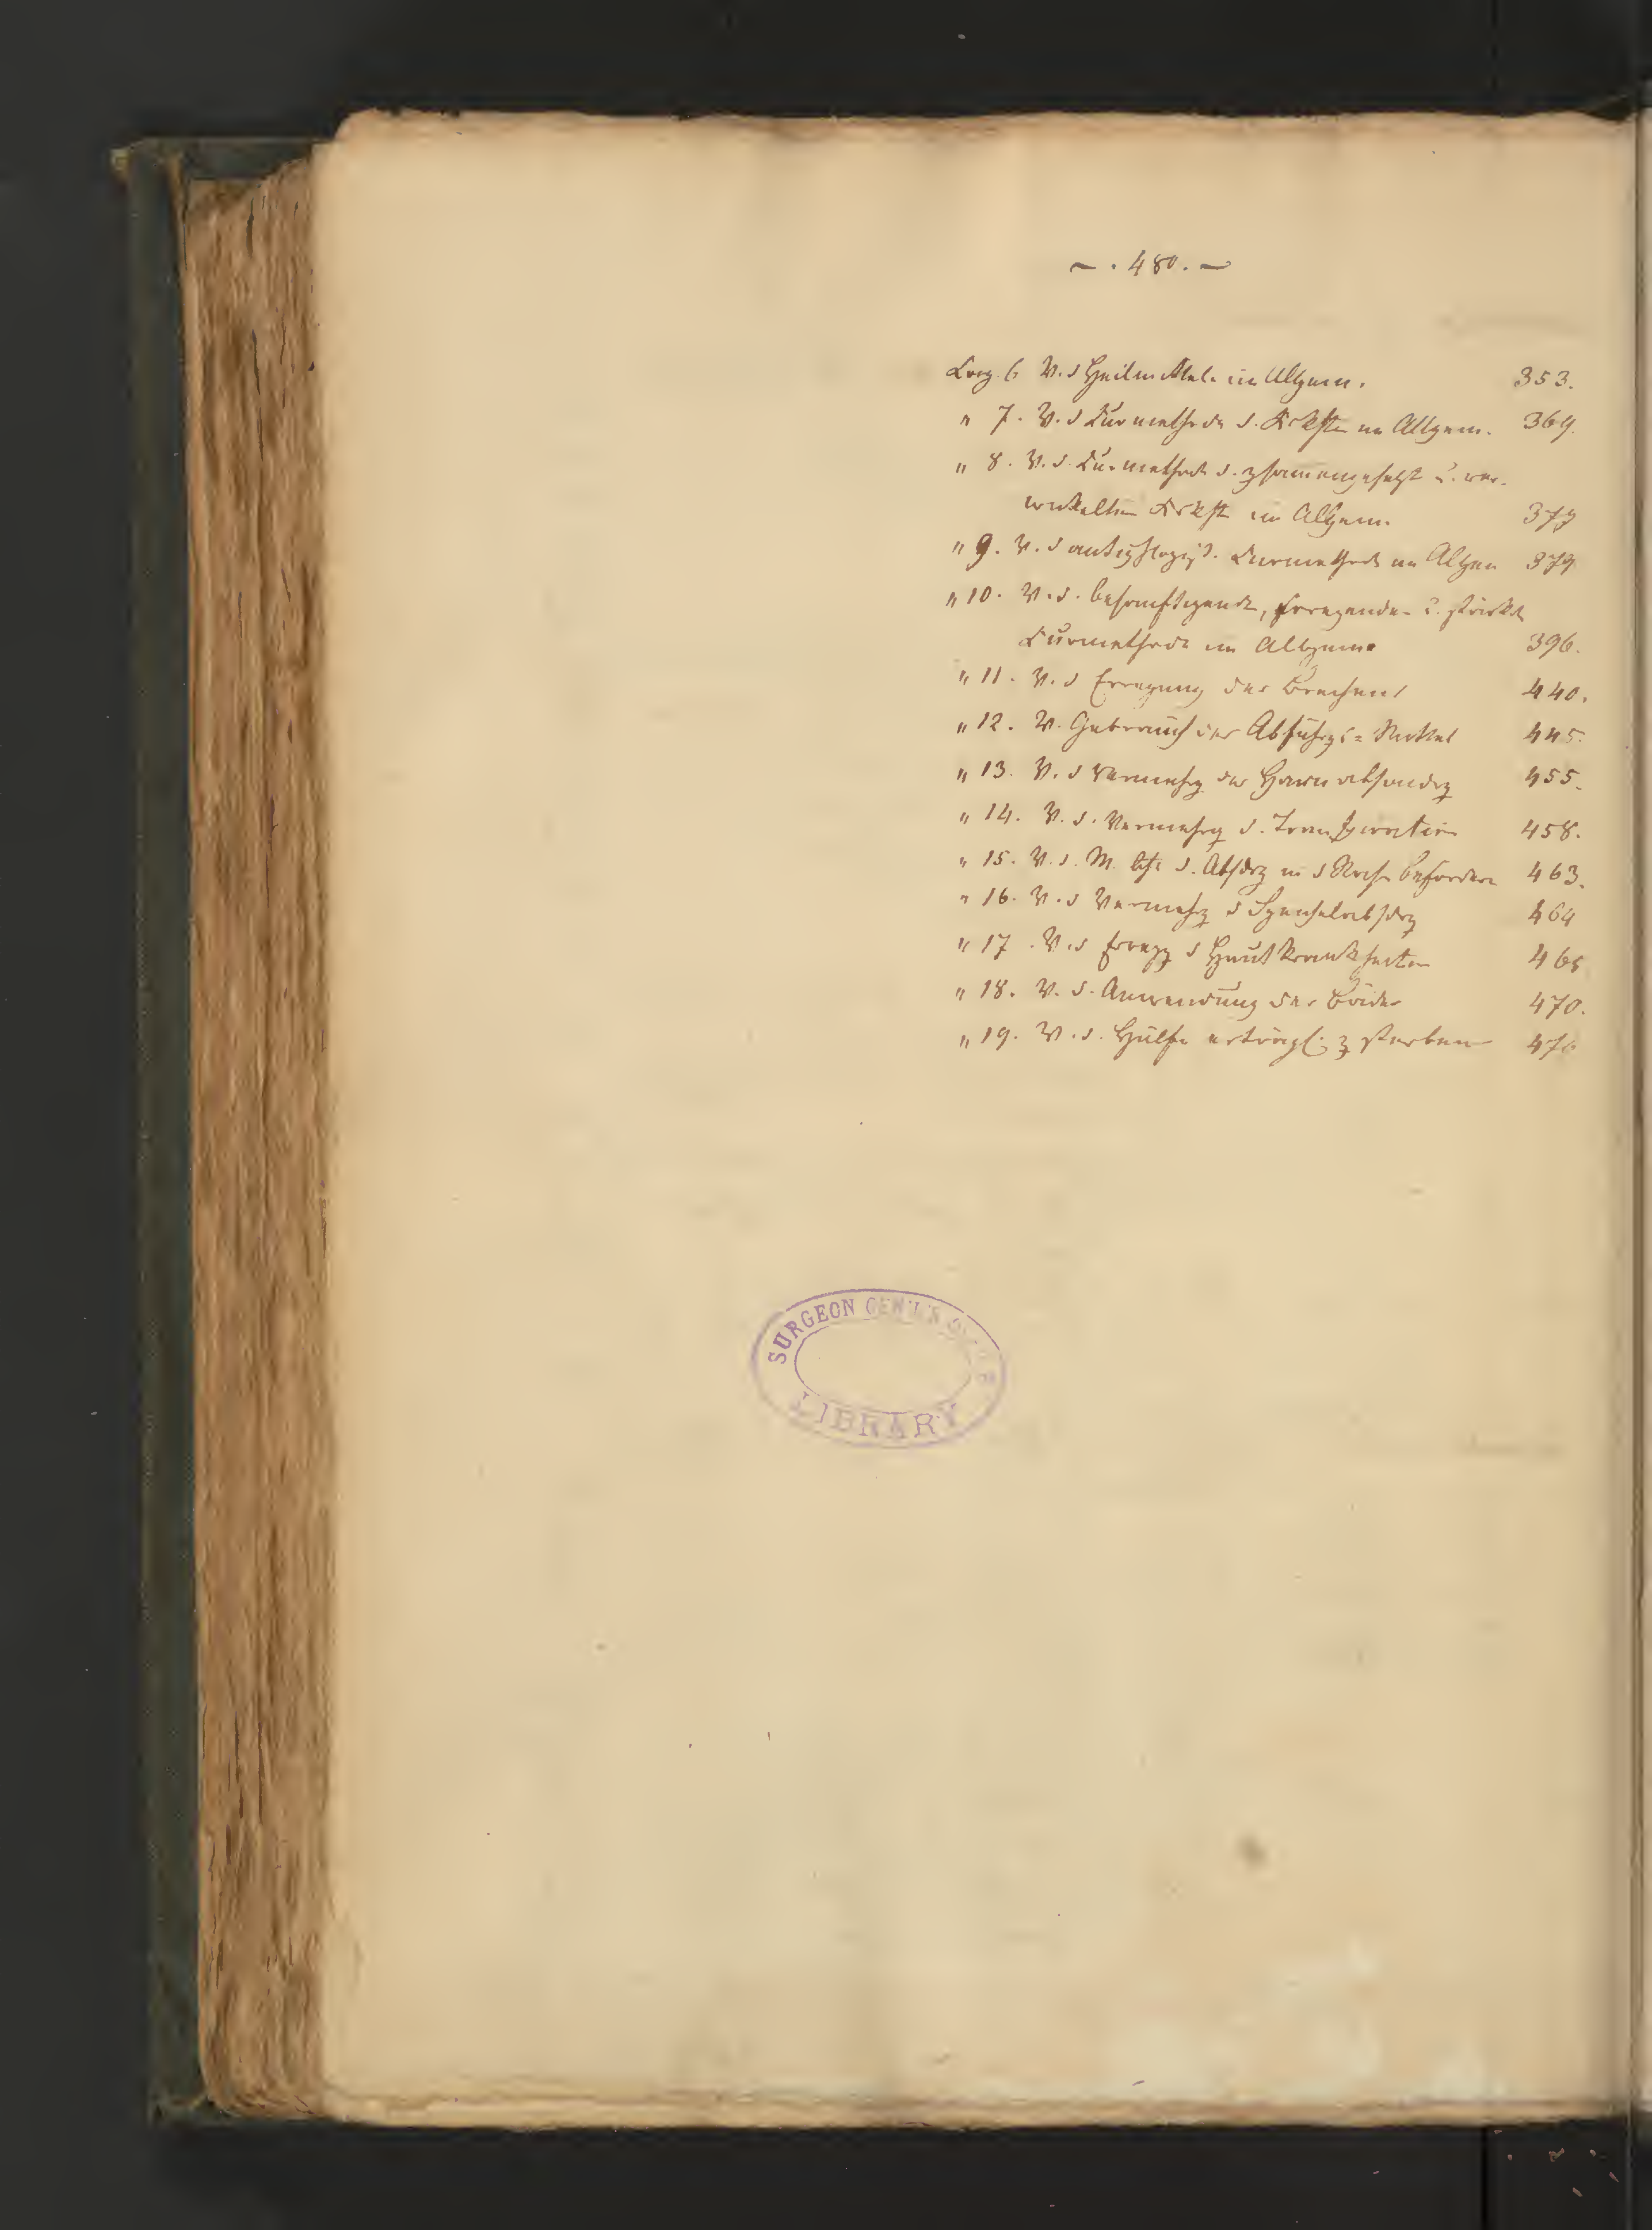 — . 480. —
Cap. 6 V. d Heilmittel im Allgem. 353.
" 7. V. d Curmethode d. Krkhtn im Allgem. 369.
" 8. V. d. Curmethode d. zsamengesetzt u. ver-
wickelten Krkht im Allgem. 377
" 9. V. d antiphlogist. Curmethode im Allgem 379
" 10. V. d. besänftigende, erregende u. stärkde
Curmethode im Allgem. 396.
" 11. V. d Erregung des Brechens 440.
" 12. V. Gebrauch der Abführgs= Mittel 445.
" 13. V. d Vermehrg der Harnabsondrg 455.
" 14. V. d. Vermehrg d. Transpiration 458.
" 15. V. d. M. d. Absdrg in d Nase befördern 463.
" 16. V. d Vermehrg d Speichelabsdrg 464
" 17. V. d Erregg d Hautkrankheiten 465
" 18. V. d. Anwendung der Bäder 470.
" 19. V. d. Hülfe erträgl. z sterben 476
SURGEON GEN'L'S OFFICE
LIBRARY